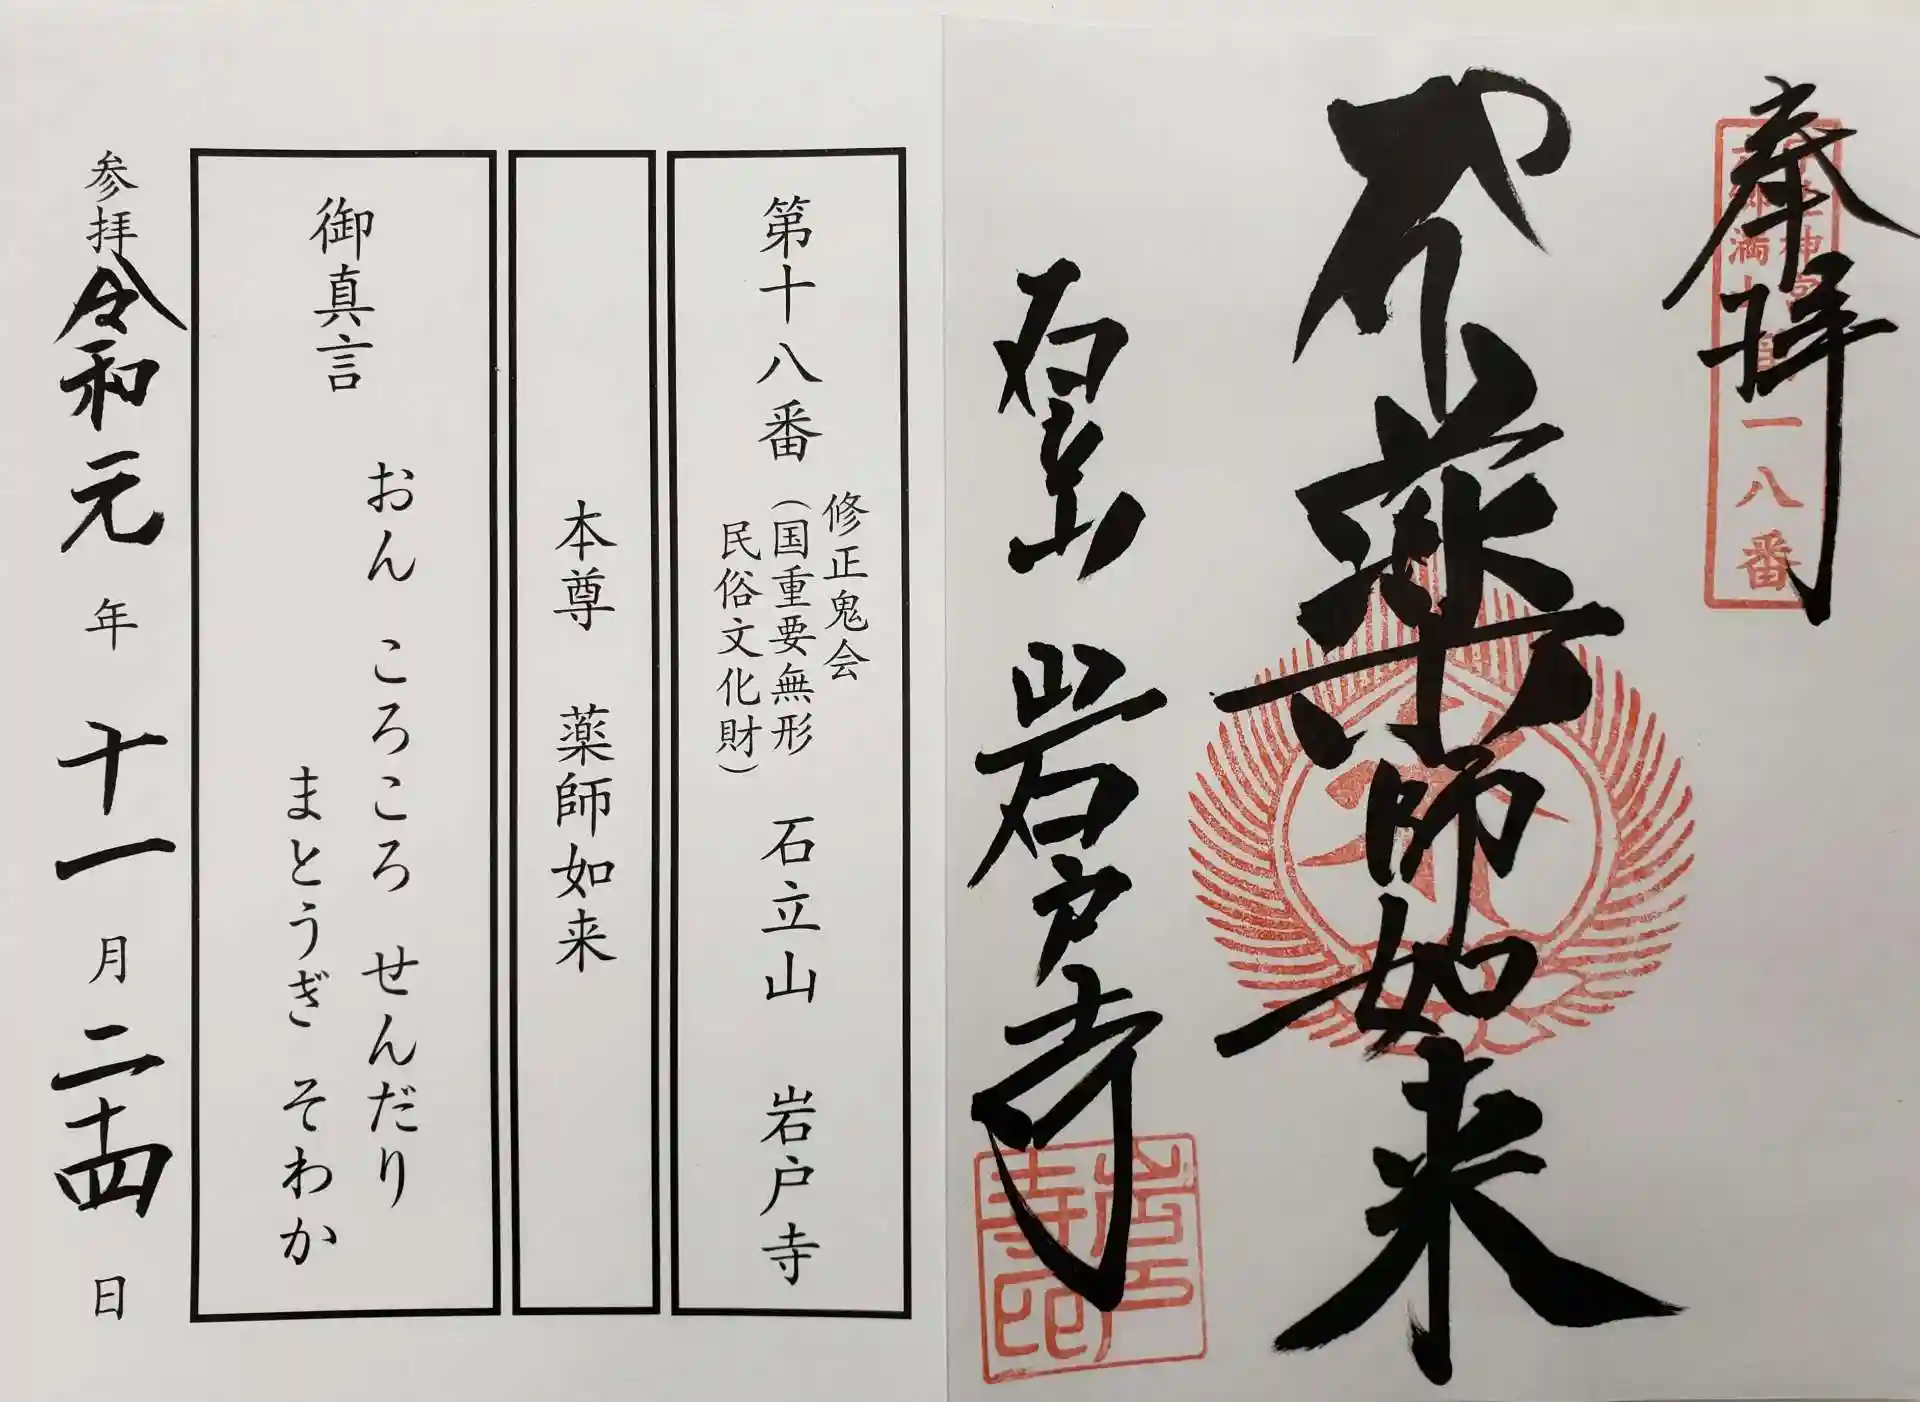 奉拝
一八番
薬師如来
石立山 岩戸寺
岩戸寺印
第十八番
修正鬼会
(国重要無形
民俗文化財)
石立山 岩戸寺
本尊 薬師如来
御真言
おん ころころ せんだり
まとうぎ そわか
参拝 令和元年十一月二十四日